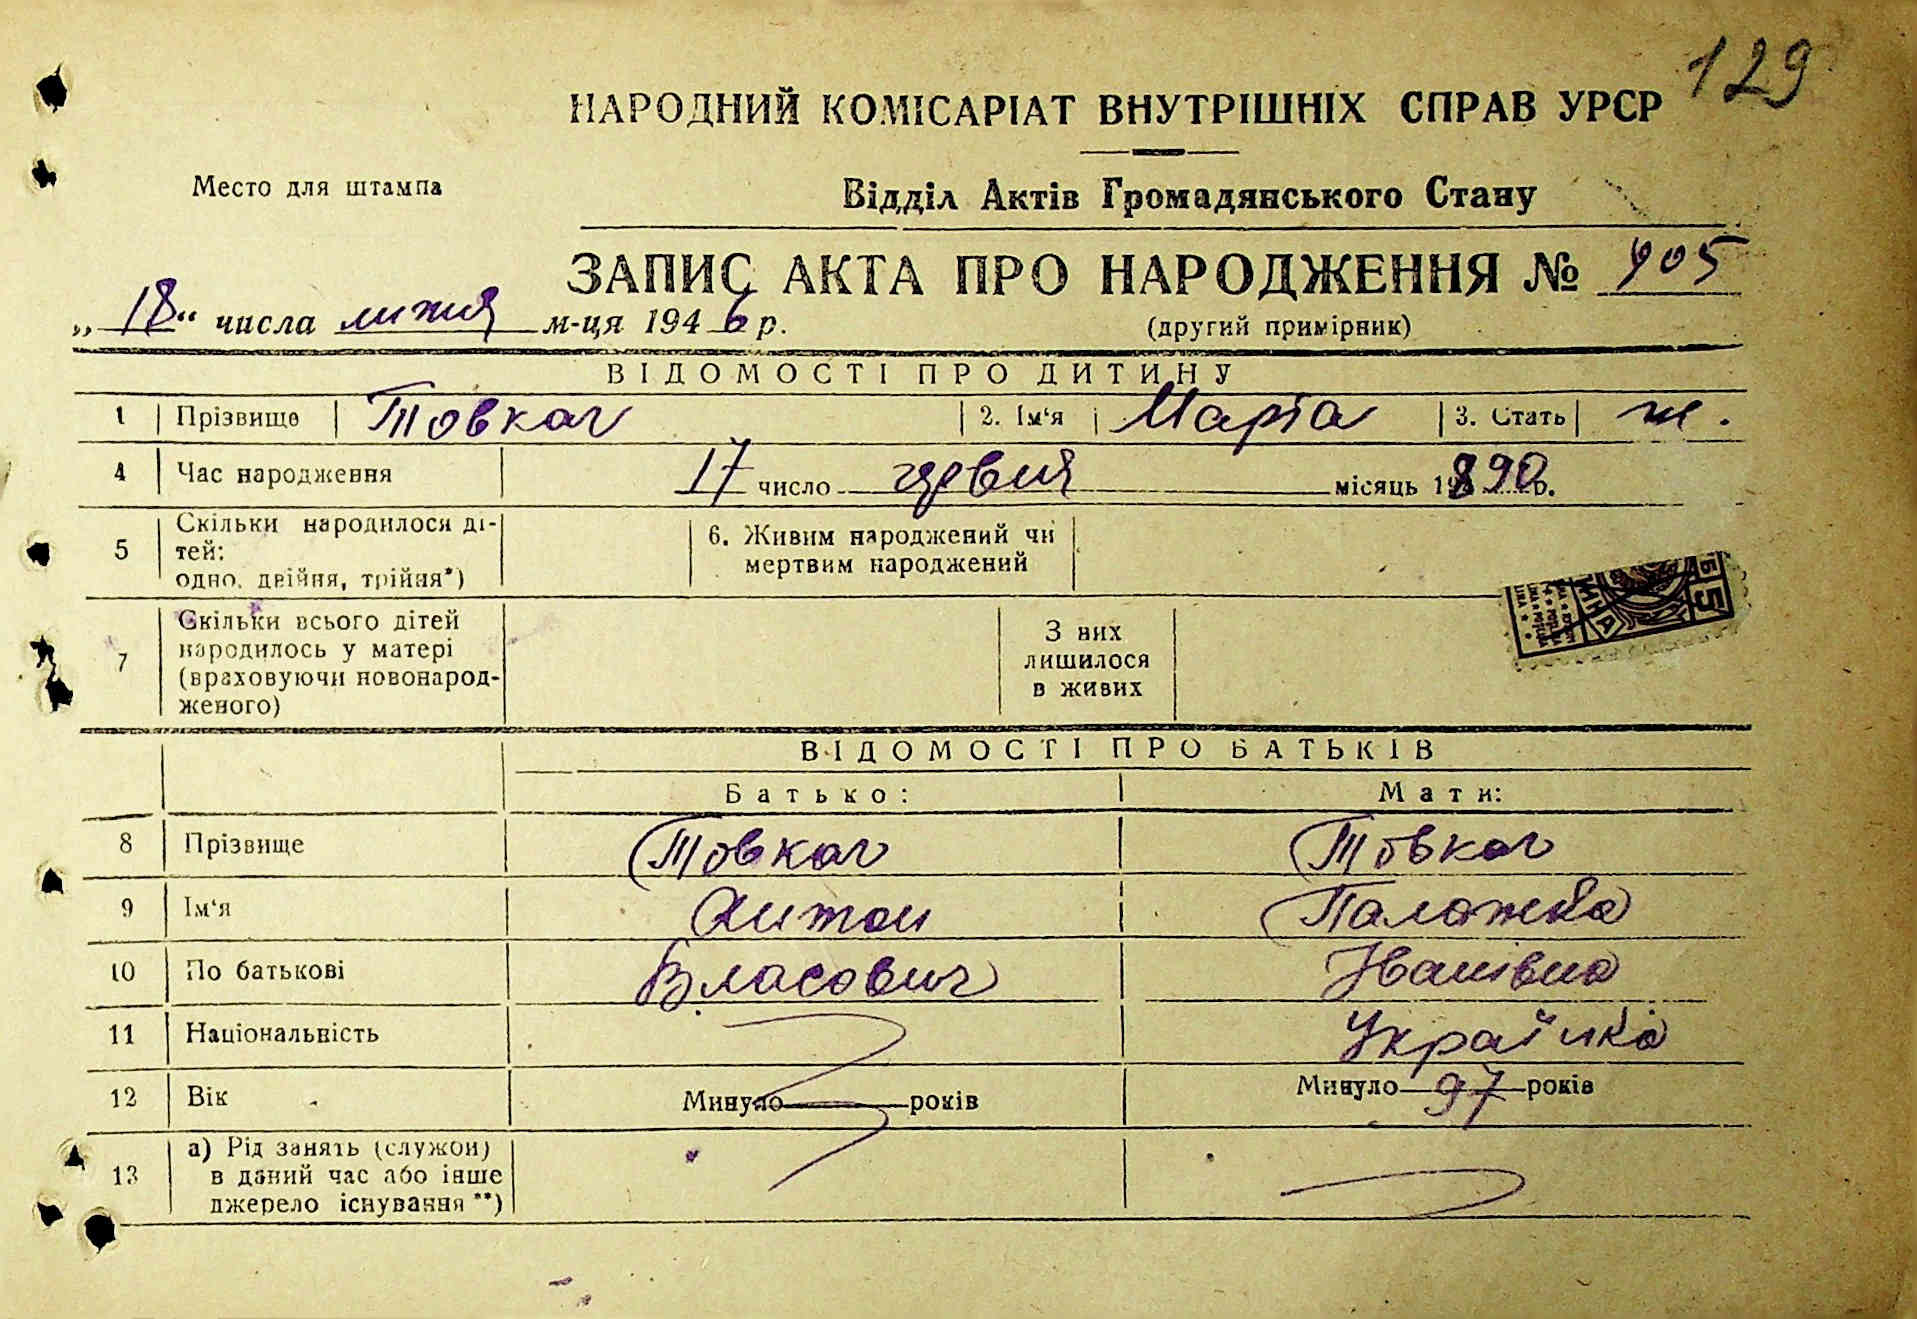 129
НАРОДНИЙ КОМІСАРІАТ ВНУТРІШНІХ СПРАВ УРСР
Место для штампа
Відділ Актів Громадянського Стану
ЗАПИС АКТА ПРО НАРОДЖЕННЯ № 905
„18“ числа липня м-ця 1946 р.
(другий примірник)
ВІДОМОСТІ ПРО ДИТИНУ
1 Прізвище Товкач 2. Ім‘я Марія 3. Стать ж.
4 Час народження 17 число червня місяць 1890 р.
5 Скільки народилося ді-
тей:
одно, двійня, трійня*)
6. Живим народжений чи
мертвим народжений
7 Скільки всього дітей
народилось у матері
(враховуючи новонарод-
женого)
З них
лишилося
в живих
ВІДОМОСТІ ПРО БАТЬКІВ
Батько: Мати:
8 Прізвище Товкач Товкач
9 Ім‘я Антон Палажка
10 По батькові Власович Іванівна
11 Національність Українка
12 Вік Минуло років Минуло 97 років
13 а) Рід занять (служби)
в даний час або інше
джерело існування **)